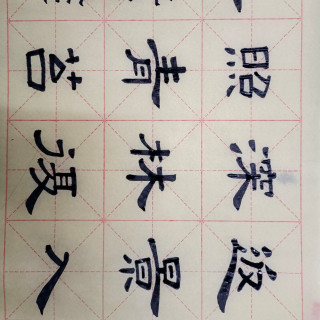 返景入
深林復
照青苔